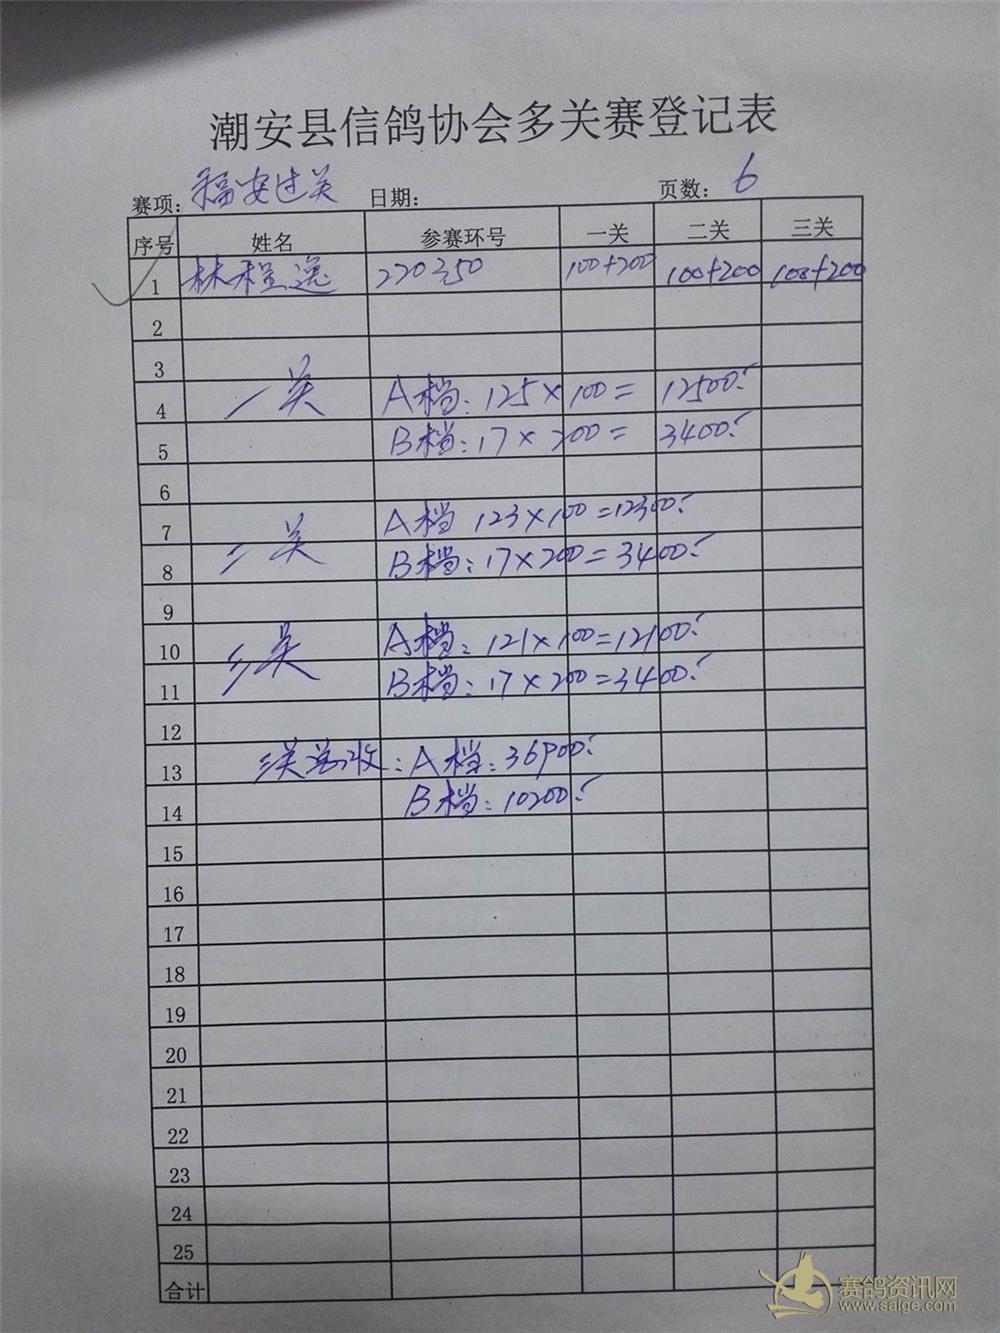 潮安县信鸽协会多关赛登记表
赛项: 福安过关 日期: 页数: 6
序号 姓名 参赛环号 一关 二关 三关
1 林程逸 220350 100+200 100+200 100+200
2
3
4 一关 A档: 125×100= 12500
5 B档: 17×200= 3400
6
7 A档 123×100=12300
8 二关 B档: 17×200=3400
9
10 三关 A档: 121×100=12100
11 B档: 17×200=3400
12
13 三关总收: A档: 36900
14 B档: 10200
15
16
17
18
19
20
21
22
23
24
25
合计
赛鸽资讯网
www.saige.com